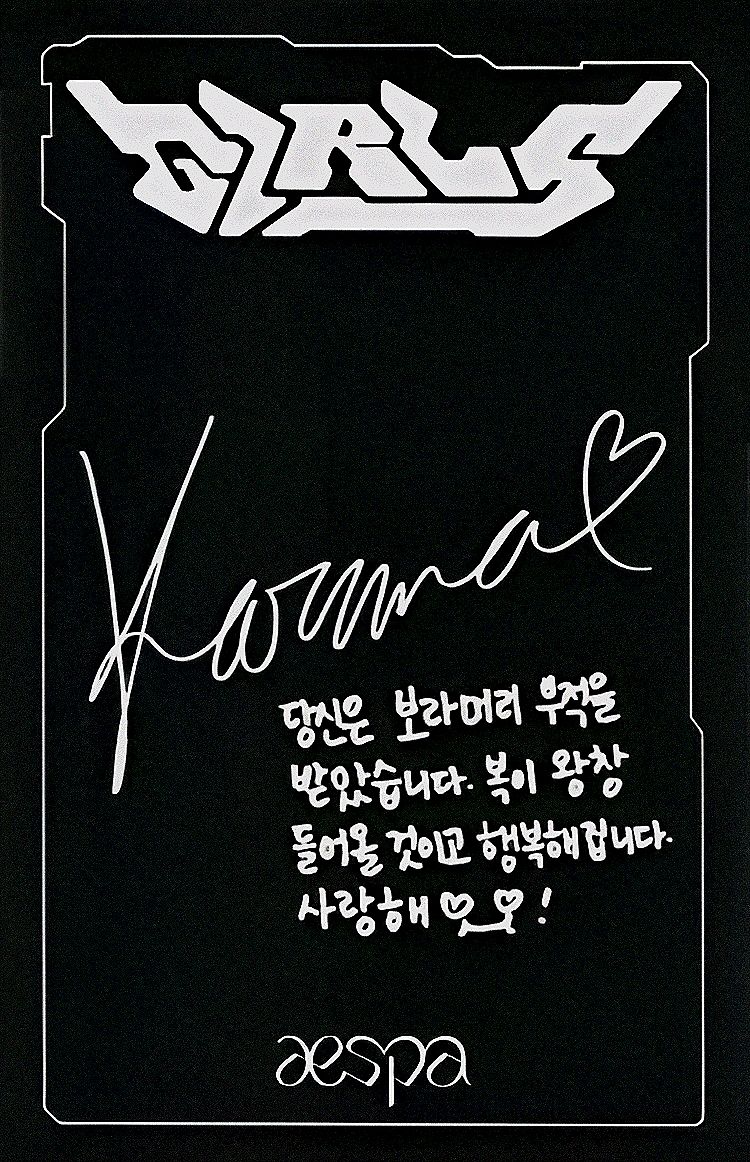 GIRLS
Karina
당신은 보라머리 부적을
받았습니다. 복이 왕창
들어올 것이고 행복해집니다.
사랑해 ♡♡!
aespa